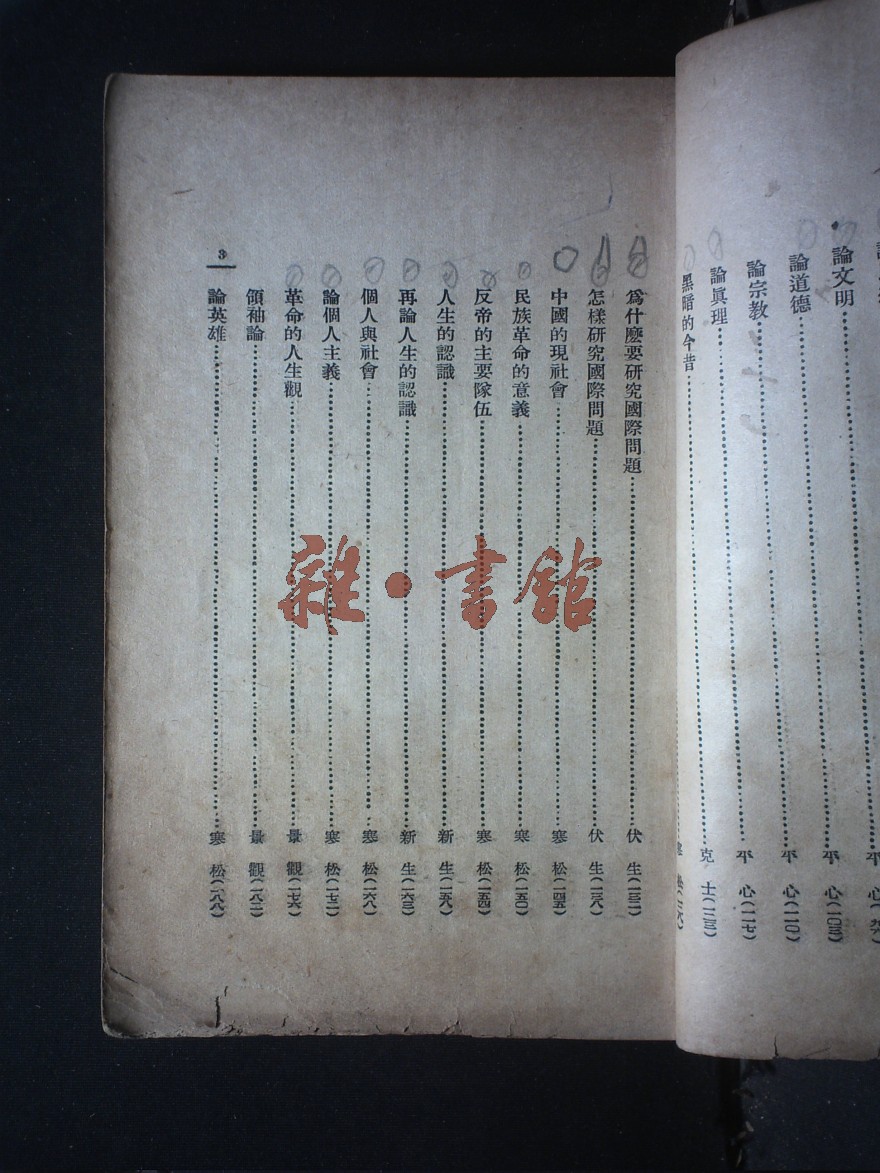 論文明……平 心(一〇三)
論道德……平 心(一一〇)
論宗教……平 心(一一七)
論眞理……克 士(一二三)
黑暗的今昔……寒 松(一二六)
爲什麽要研究國際問題……伏 生(一三二)
怎樣研究國際問題……伏 生(一三八)
中國的現社會……寒 松(一四五)
民族革命的意義……寒 松(一五〇)
反帝的主要隊伍……寒 松(一五四)
人生的認識……新 生(一五八)
再論人生的認識……新 生(一六三)
個人與社會……寒 松(一六八)
論個人主義……寒 松(一七二)
革命的人生觀……景 觀(一七六)
領袖論……景 觀(一八二)
論英雄……寒 松(一八八)
3
雜·書館